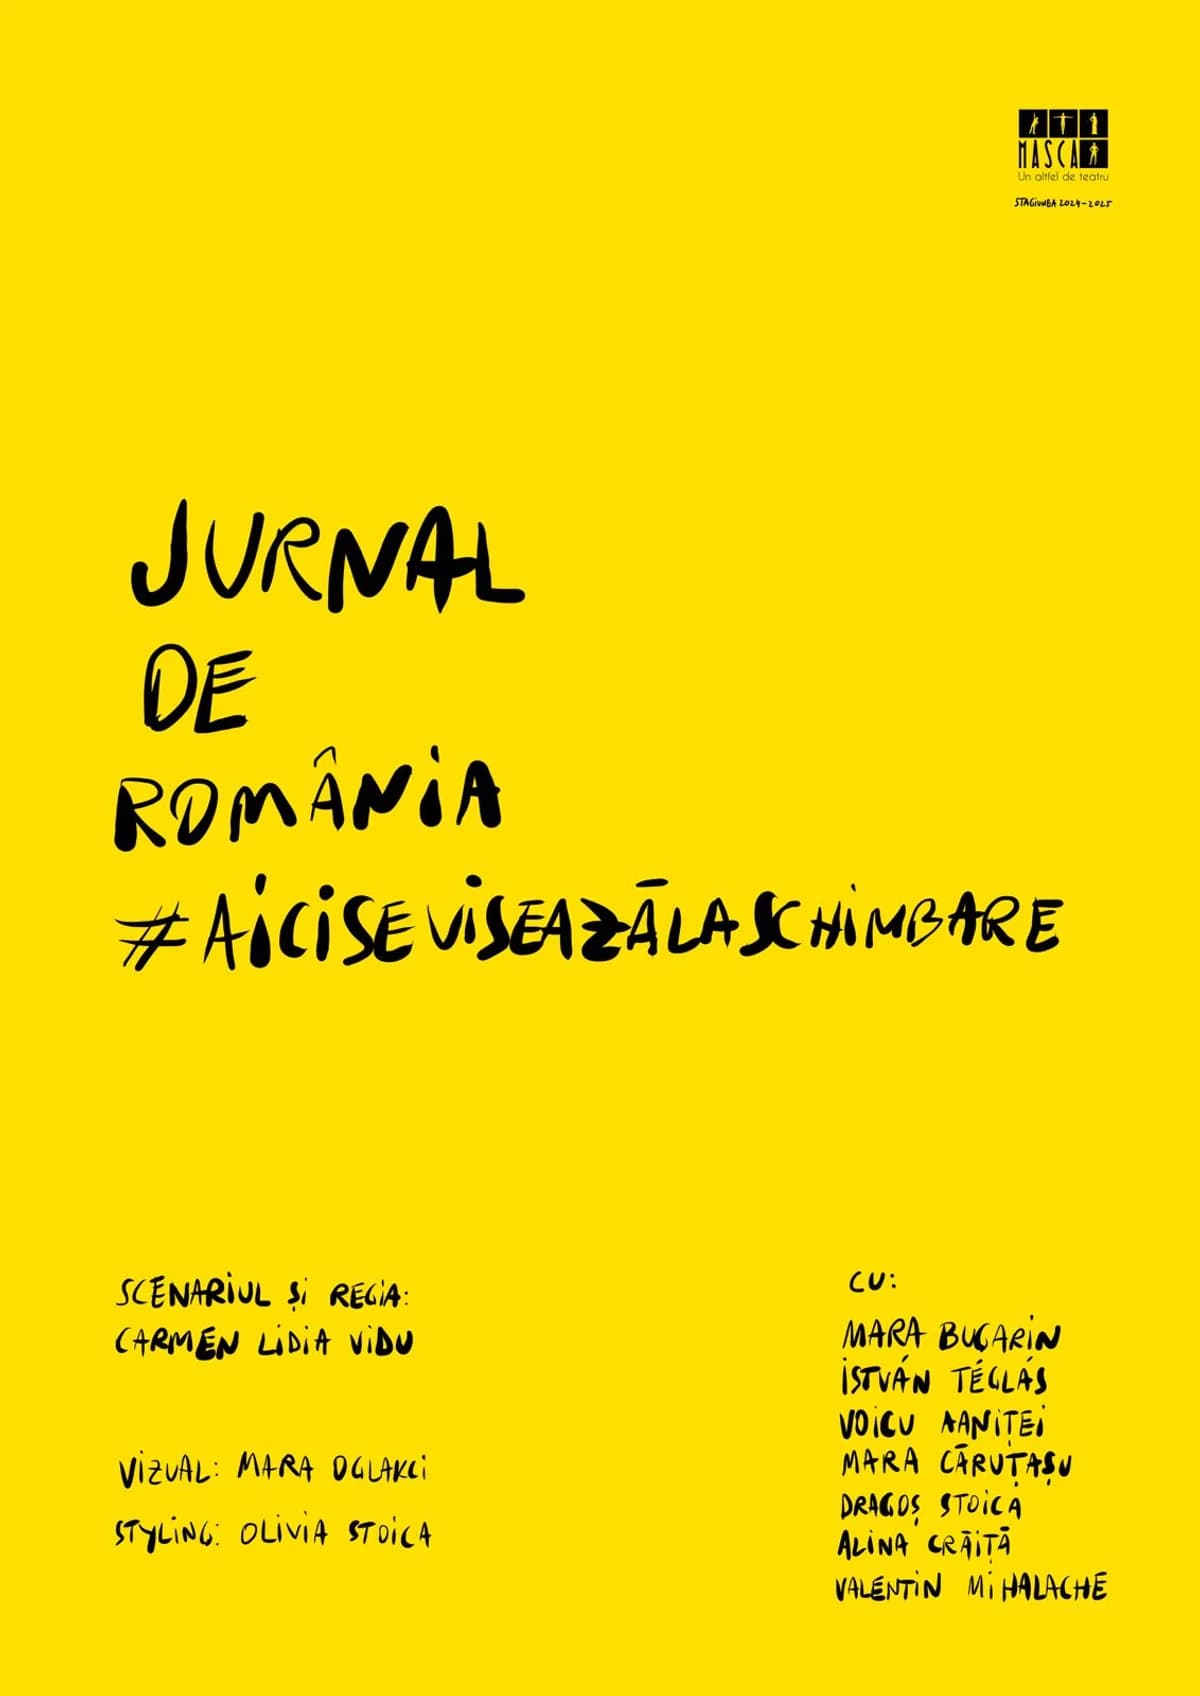 MASCA
Un altfel de teatru
STAGIUNEA 2024-2025
JURNAL
DE
ROMÂNIA
#AICISEVISEAZĂLASCHIMBARE
SCENARIUL ȘI REGIA:
CARMEN LIDIA VIDU
VIZUAL: MARA OGLAKCI
STYLING: OLIVIA STOICA
CU:
MARA BUGARIN
ISTVÁN TÉGLÁS
VOICU AANIȚEI
MARA CĂRUȚAȘU
DRAGOȘ STOICA
ALINA CRĂIȚĂ
VALENTIN MIHALACHE